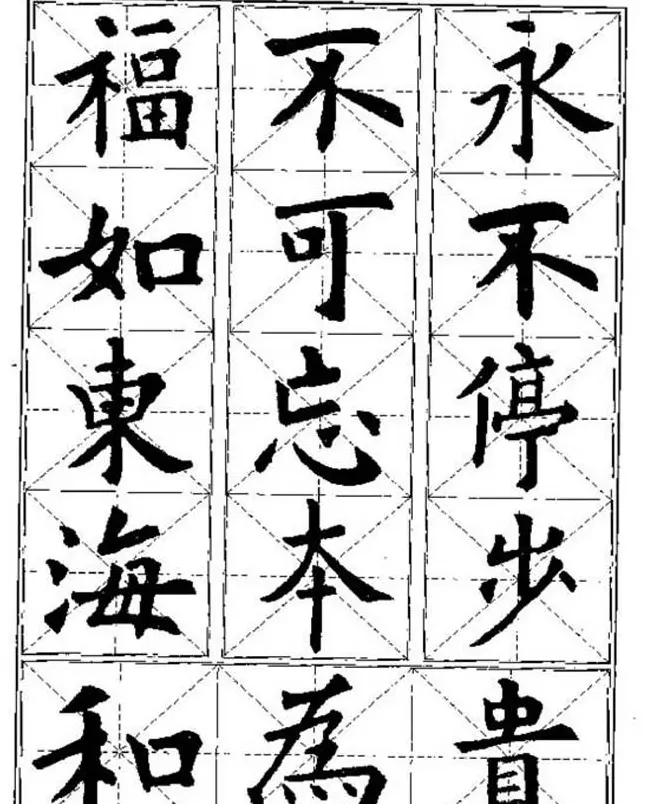 福如東海
不可忘本
永不停步
和為貴